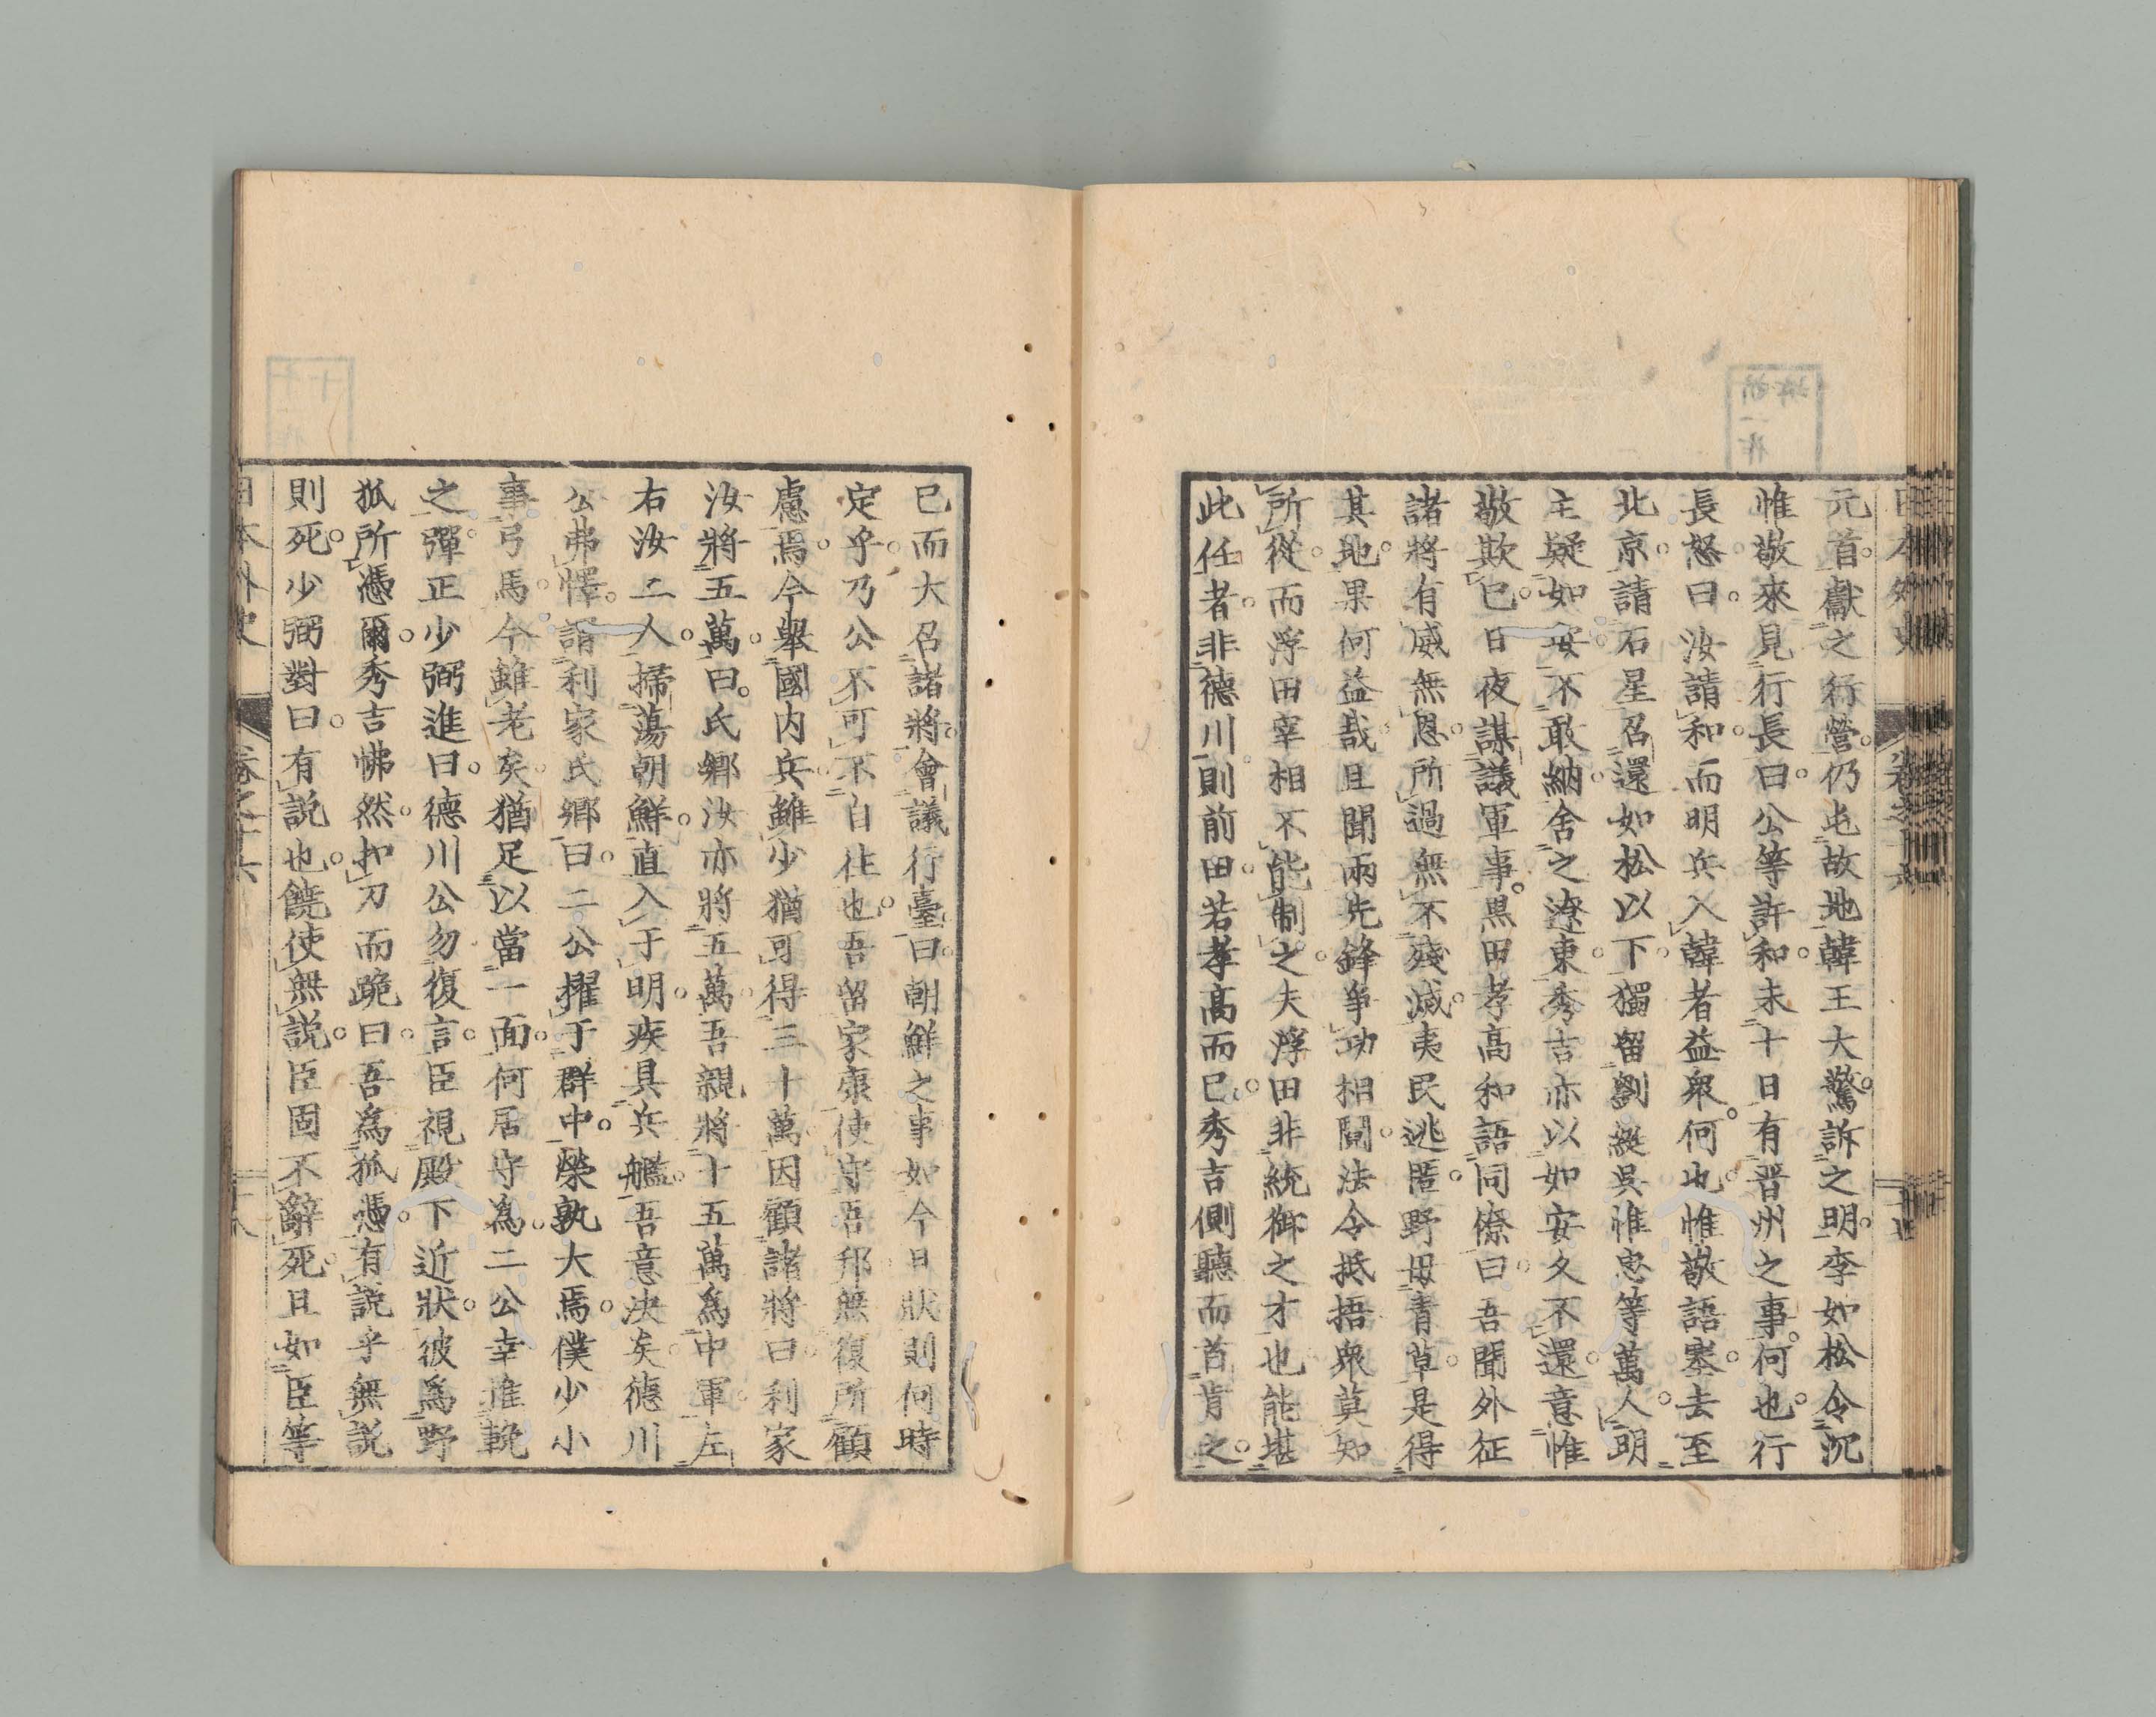 元首獻之行營仍屯故地韓王大驚訴之明李如松令沉
惟敬來見行長曰公等許和未十日有晋州之事何也行
長怒曰汝請和而明兵入韓者益衆何也惟敬語塞去至
北京請石星召還如松以下獨留劉綎吳惟忠等萬人明
主疑如安不敢納舍之遼東秀吉亦以如安久不還意惟
敬欺已日夜謀議軍事黒田孝高和語同僚曰吾聞外征
諸將有威無恩所過無不殘滅夷民逃匿野毋靑草是得
其地果何益哉且聞兩先鋒爭功相鬩法令抵捂衆莫知
所從而浮田宰相不能制之夫浮田非統御之才也能堪
此任者非德川則前田若孝高而已秀吉側聽而首肯之
已而大召諸將會議行臺曰朝鮮之事如今日狀則何時
定乎乃公不可不自往也吾留家康使守吾邦無復所顧
慮焉今舉國内兵雖少猶可得三十萬因顧諸將曰利家
汝將五萬曰氏鄉汝亦將五萬吾親將十五萬爲中軍左
右汝二人掃蕩朝鮮直入于明疾具兵艦吾意決矣德川
公弗懌謂利家氏鄉曰二公擢于群中榮孰大焉僕少小
事弓馬今雖老矣猶足以當一面何居守爲二公幸進輓
之彈正少弼進曰德川公勿復言臣視殿下近狀彼爲野
狐所憑爾秀吉怫然扣刀而跪曰吾爲狐憑有説乎無説
則死少弼對曰有説也饒使無説臣固不辭死且如臣等
日本外史 卷之十六 十八